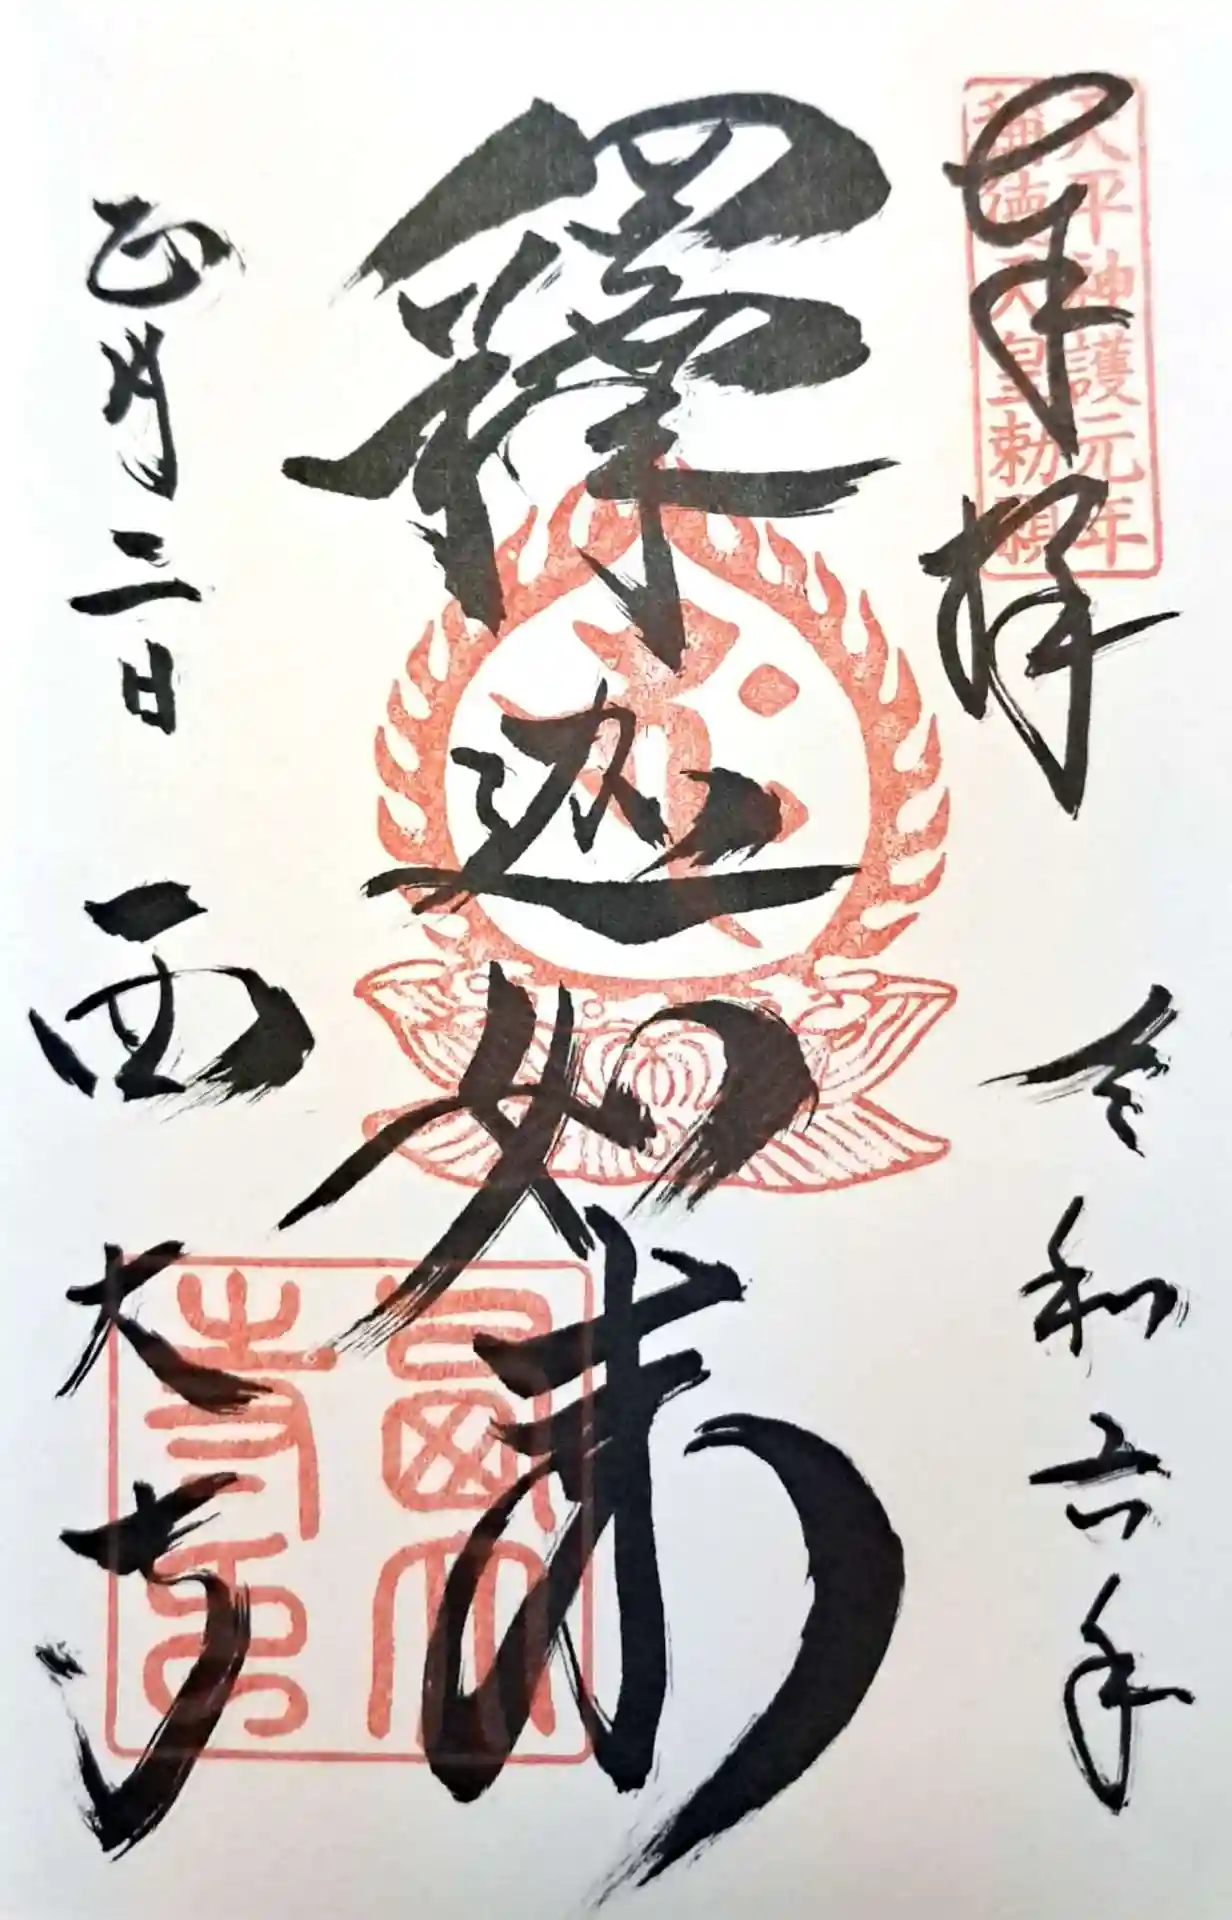 奉拝
天平神護元年
稱徳天皇勅願
令和六年
釋迦如来
正月二日
西大寺
西大寺印